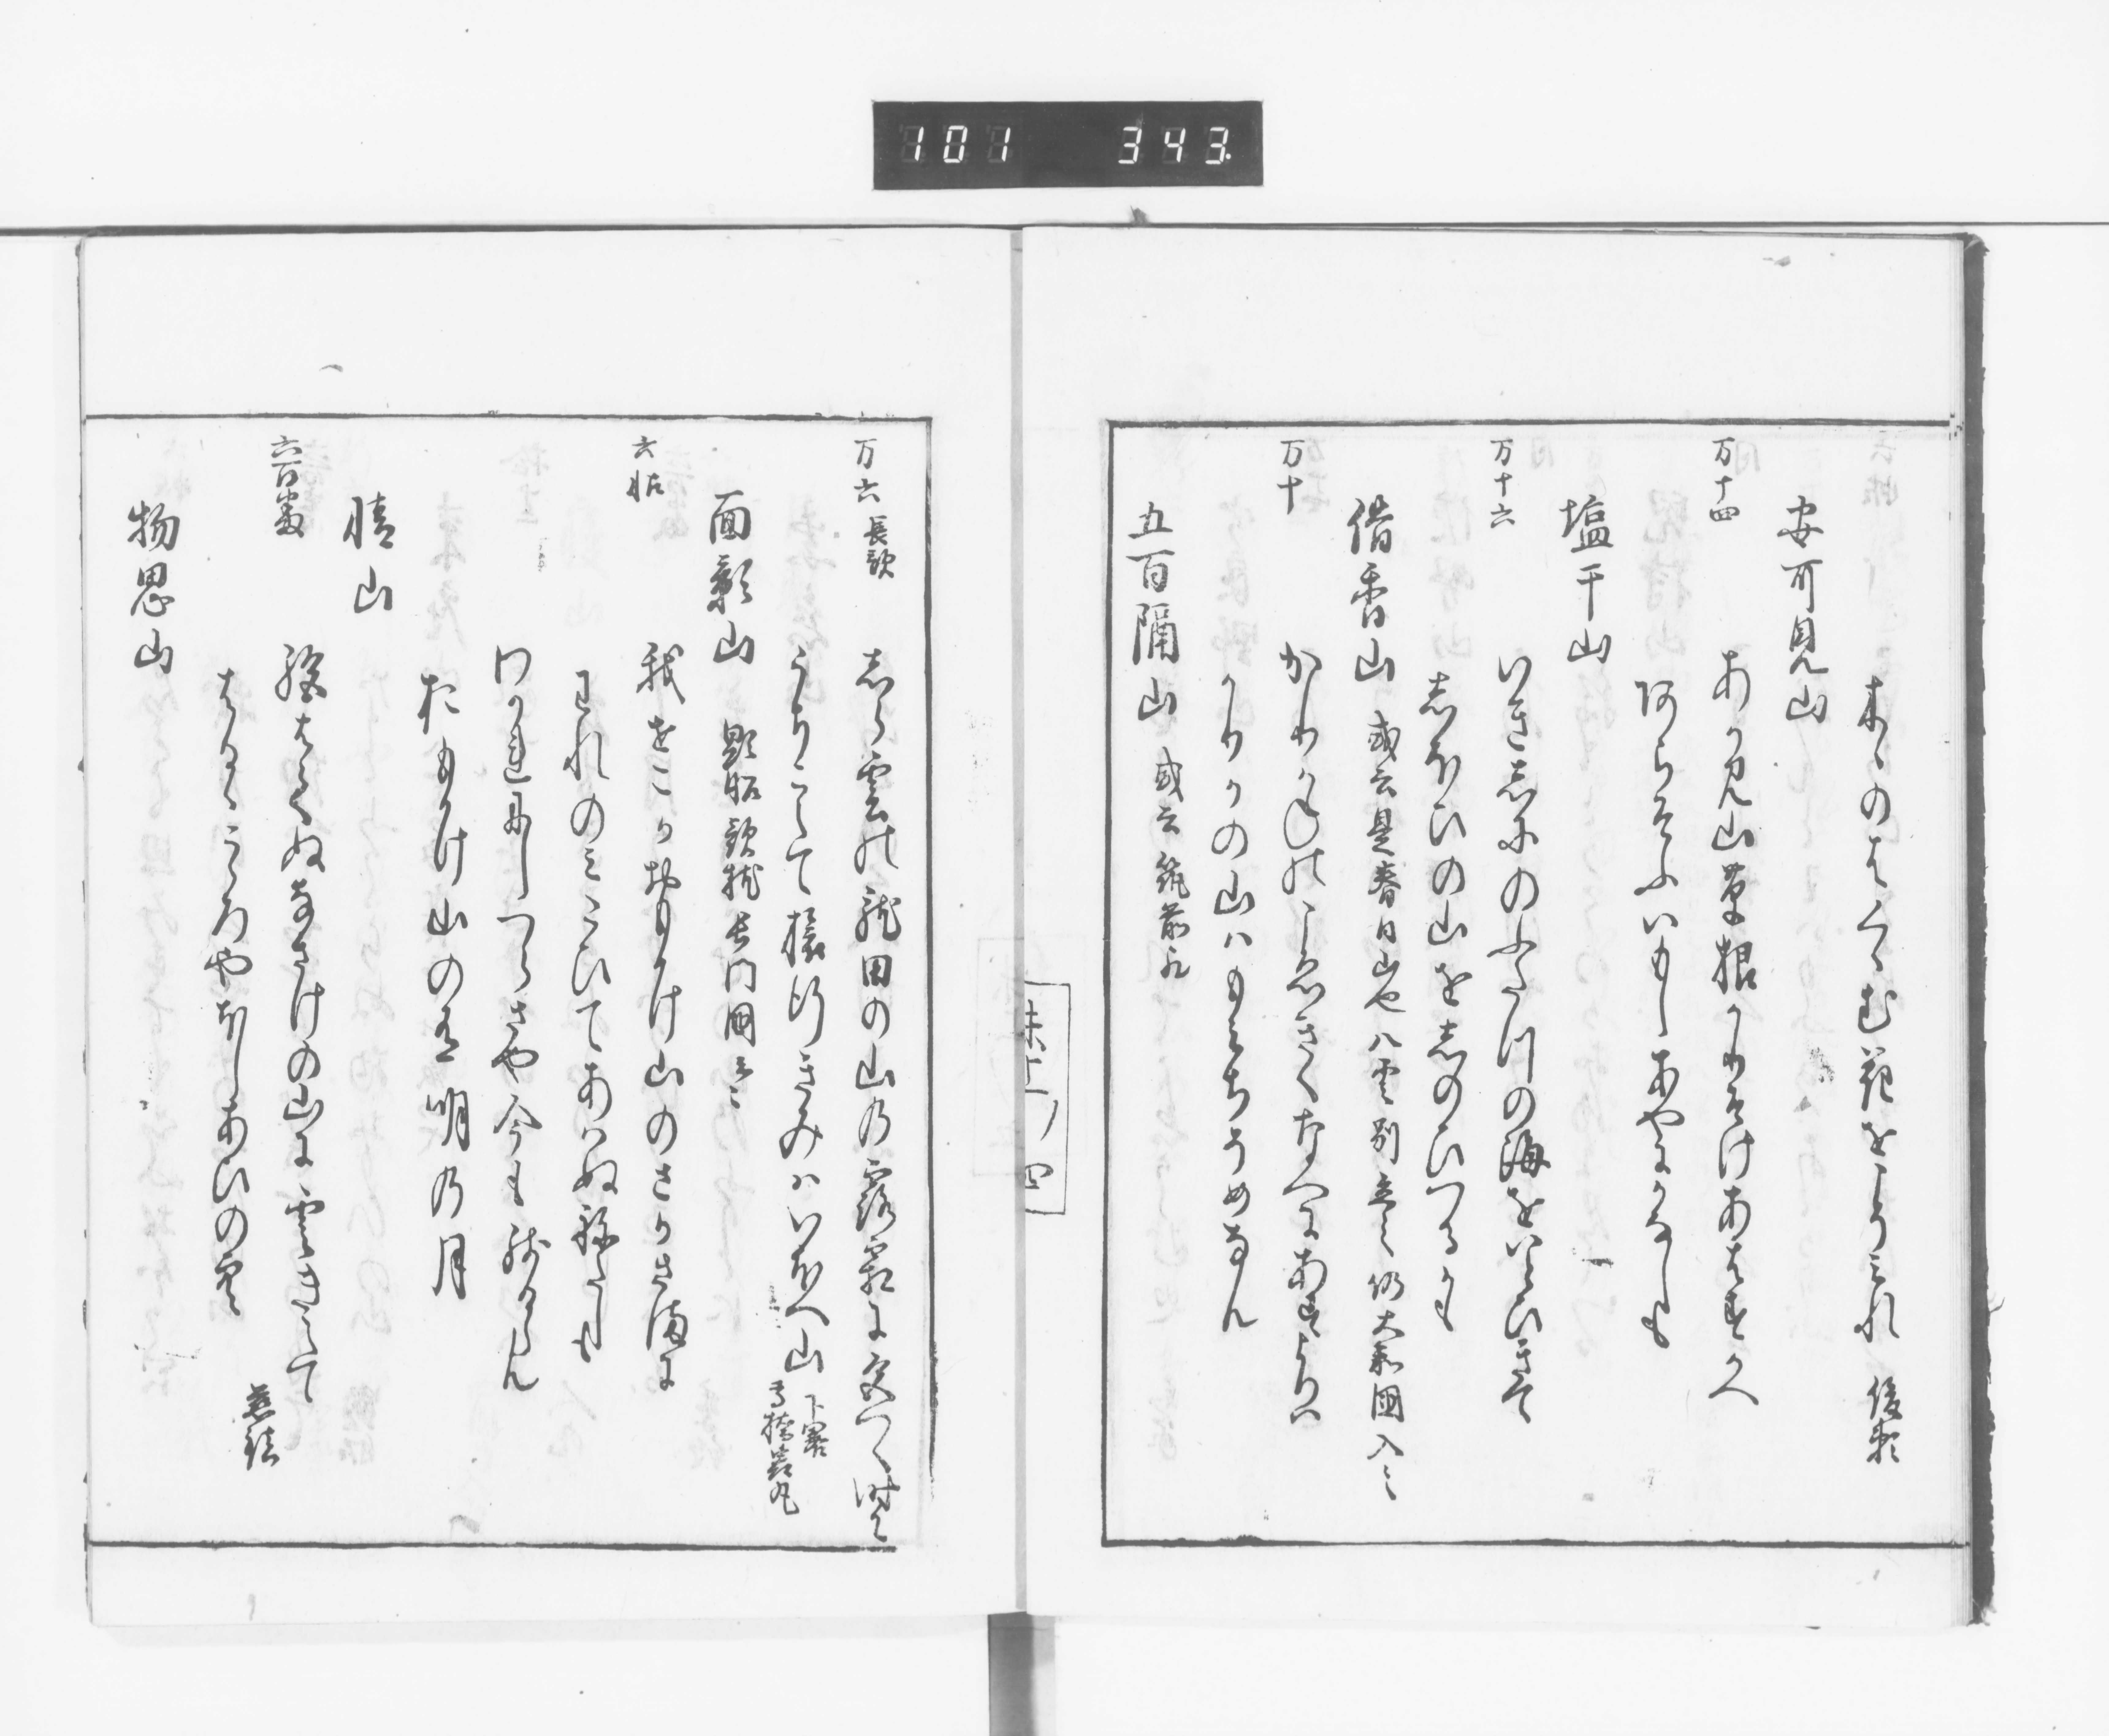 101 343
木々のはくくむ花をこそみれ 俊頼
安可見山
万十四 あかみ山草根かりそけあはすかへ
あらそふいもしあやにかなしも
塩干山
万十六 いきしにのふたつの海をいとひきて
しほひの山をしのひつるかも
借香山 或云是春日山也八雲別立之仍大和国入之
万十 かりかねのこゑきくなへにあすよりは
かりかの山はもみちそめなん
五百隔山 或云筑前国
未上ノ四
万六 長歌 しら雲の龍田の山の露霜に色つく時に
うちこえて旅行きみはいほへ山 下略 高橋虫丸
面影山 顕昭歌枕長門国云々
六帖 我をこかおもかけ山のさかさまに
われのみこひてあはぬねたしも
わかれにしつらさや今も残るらん
おもかけ山の有明の月
情山
六百番 終はてぬなさけの山に雲きえて
はるゝこゝろやほしあひの空 慈鎮
物思山